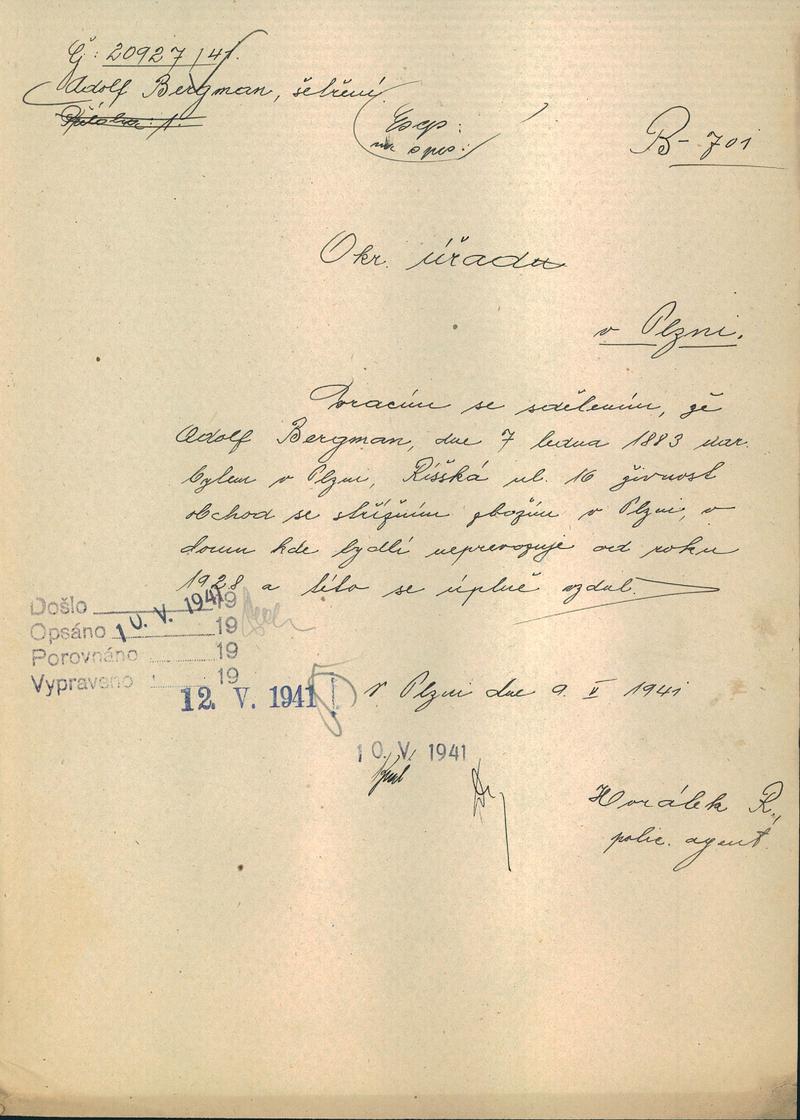 Č: 20927/41.
Adolf Bergman, šetření
Příloha: 1.
Exp:
na spis:
B-701
Okr. úřadu
v Plzni.
Vracím se sdělením, že
Adolf Bergman, dne 7 ledna 1883 nar.
bytem v Plzni, Říšská ul. 16 živnost
obchod se střižním zbožím v Plzni, v
domu kde bydlí neprovozuje od roku
1928 a této se úplně vzdal.
Došlo 19
10. V. 1941
Opsáno 19
Porovnáno 19
Vypraveno 19
12. V. 1941
V Plzni dne 9. V 1941
10. V. 1941
Horálek R.,
polic. agent.